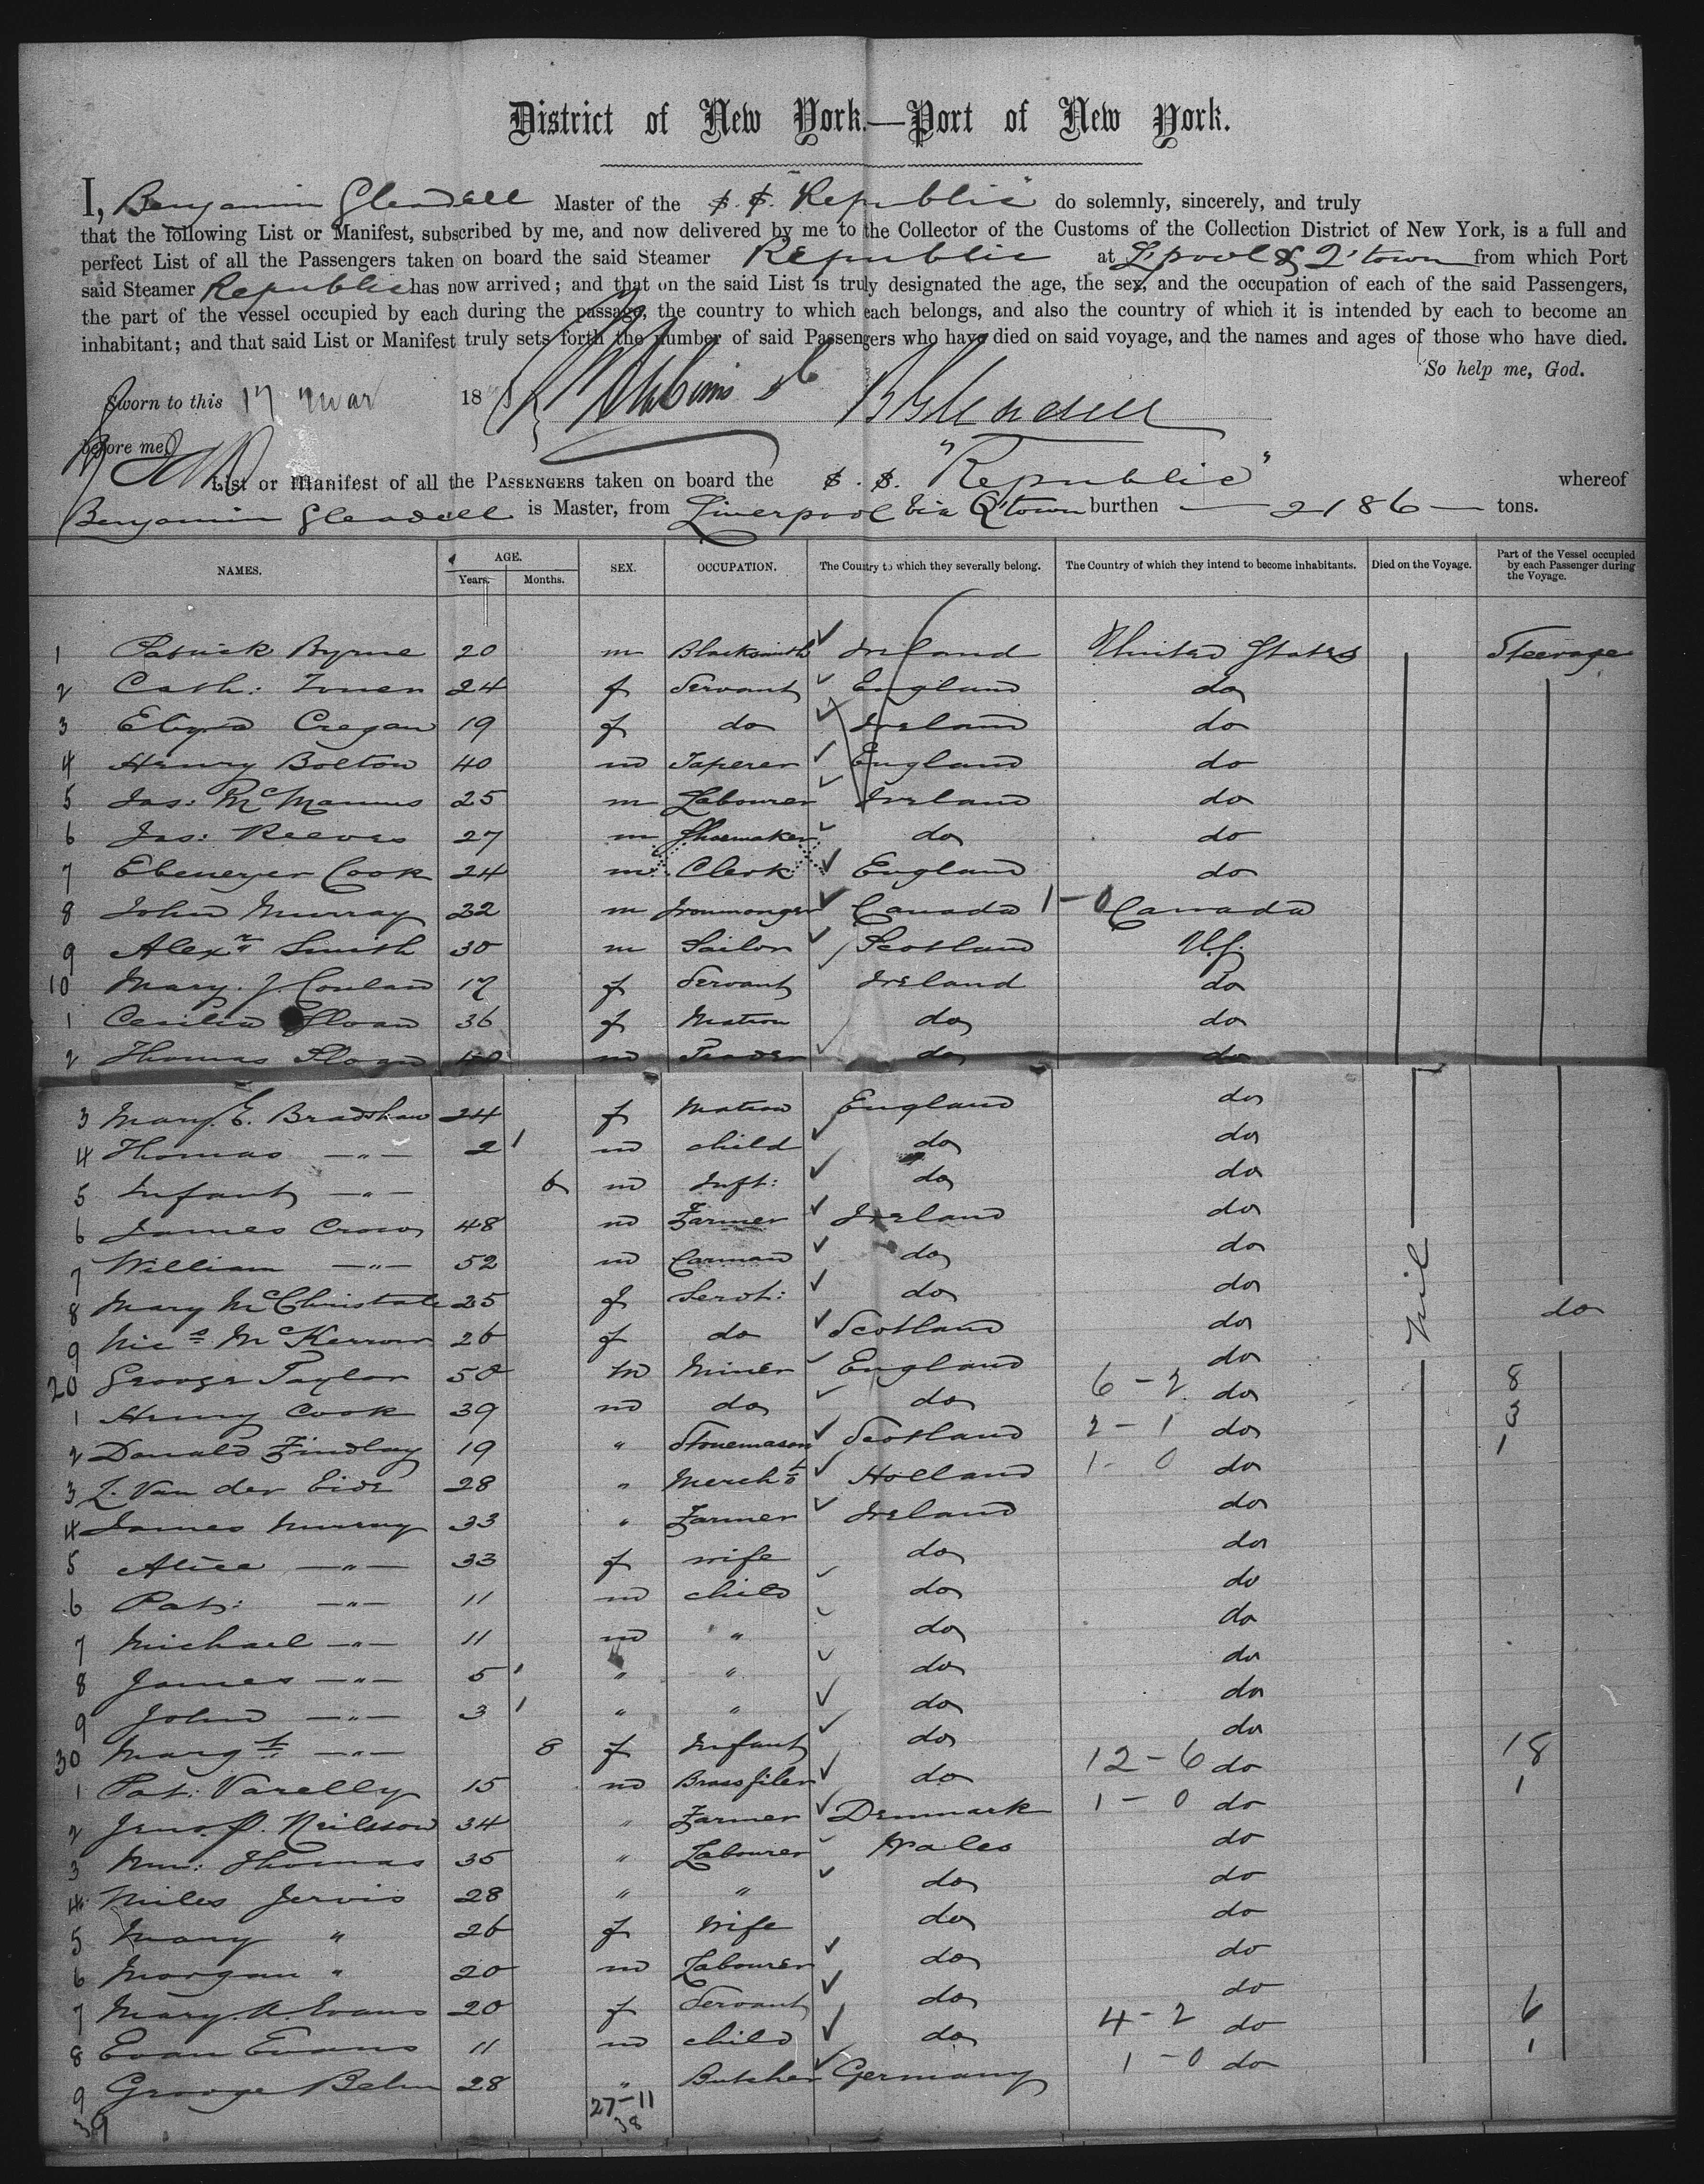 District of New York.—Port of New York.
I, Benjamin Gleadell Master of the S.S. "Republic" do solemnly, sincerely, and truly
that the following List or Manifest, subscribed by me, and now delivered by me to the Collector of the Customs of the Collection District of New York, is a full and
perfect List of all the Passengers taken on board the said Steamer Republic at L'pool & Q'town from which Port
said Steamer Republic has now arrived; and that on the said List is truly designated the age, the sex, and the occupation of each of the said Passengers,
the part of the vessel occupied by each during the passage, the country to which each belongs, and also the country of which it is intended by each to become an
inhabitant; and that said List or Manifest truly sets forth the number of said Passengers who have died on said voyage, and the names and ages of those who have died.
So help me, God.
Sworn to this 17 Mar 18 B Gleadell
before me
List or Manifest of all the PASSENGERS taken on board the S.S. "Republic" whereof
Benjamin Gleadell is Master, from Liverpool via Q'town burthen — 2186 — tons.
NAMES. AGE. Years. Months. SEX. OCCUPATION. The Country to which they severally belong. The Country of which they intend to become inhabitants. Died on the Voyage. Part of the Vessel occupied by each Passenger during the Voyage.
1 Patrick Byrne 20 m Blacksmith Ireland United States Steerage
2 Cath: 24 f Servant England do
3 Cregan 19 f do Ireland do
4 Henry Bolton 40 m Taperer England do
5 Jas: McManus 25 m Labourer Ireland do
6 Jas: Reeves 27 m Shoemaker do do
7 Ebenezer Cook 24 m Clerk England do
8 John Murray 22 m Ironmonger Canada 1-0 Canada
9 Alexr Smith 30 m Sailor Scotland U.S.
10 Mary. J. Conlan 17 f Servant Ireland do
1 Cecilia Sloan 36 f Matron do do
2 Thomas Sloan m do do
3 Mary. E. Bradshaw 24 f Matron England do
4 Thomas —"— 2 m child do do
5 Infant —"— 6 m Inft: do do
6 James Crow 48 m Farmer Ireland do
7 William —"— 52 m Carman do do
8 Mary McChristal 25 f Servt: do do do
9 Nics McKerrow 26 f do Scotland do Nil
20 George Taylor 50 m Miner England do
1 Henry Cook 39 m do do 6-2 do 8
2 Donald Findlay 19 " Stonemason Scotland 2-1 do 3
3 Van der 28 " Mercht Holland 1-0 do 1
4 James Murray 33 " Farmer Ireland do
5 Alice —"— 33 f wife do do
6 Pat: —"— 11 m child do do
7 Michael —"— 11 m " do do
8 James —"— 5 " " do do
9 John —"— 3 " " do do
30 Margt —"— 8 f Infant do do
1 Pat: Varelly 15 m Brassfiler do 12-6 do 18
2 Jens. P. Neilsson 34 " Farmer Denmark 1-0 do 1
3 Wm: Thomas 35 " Labourer Wales do
4 Miles Jervis 28 " " do do
5 Mary " 26 f Wife do do
6 Morgan " 20 m Labourer do do
7 Mary. A. Evans 20 f Servant do do
8 Evan Evans 11 m child do 4-2 do 6
9 George Behn 28 " Butcher Germany 1-0 do 1
39 27-11
38